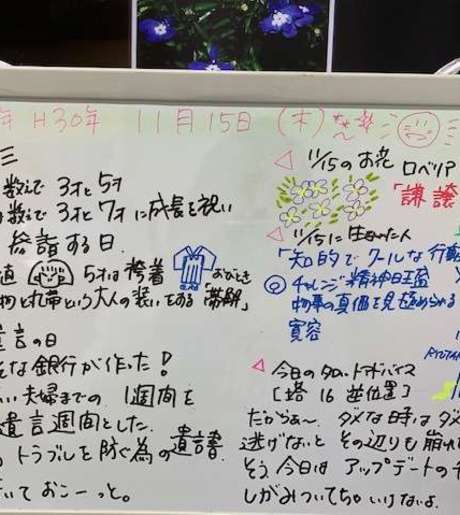 年 H30年 11月15日 (木)
三
数えで 3才と5才
数えで 3才と7才に成長を祝い
参詣する日.
5才は袴着 おびとき
物と丸帯という大人の装いをする「帯解」
遺言の日
そな銀行が作った!
い夫婦までの 1週間を
遺言週間とした.
トラブルを防ぐ為の遺言書
いて おこーっと。
11/15のお花 ロベリア
「謙譲
11/15に生まれた人
「知的でクールな行動
◎ チャレンジ精神旺盛
物事の真価を見極められる
寛容
今日のタロットアドバイス
[塔 16 逆位置]
だからぁ〜 ダメな時はダ
逃げないと その辺りも崩れ
そう 今日は アップデートの
しがみついてちゃ いけないよ.